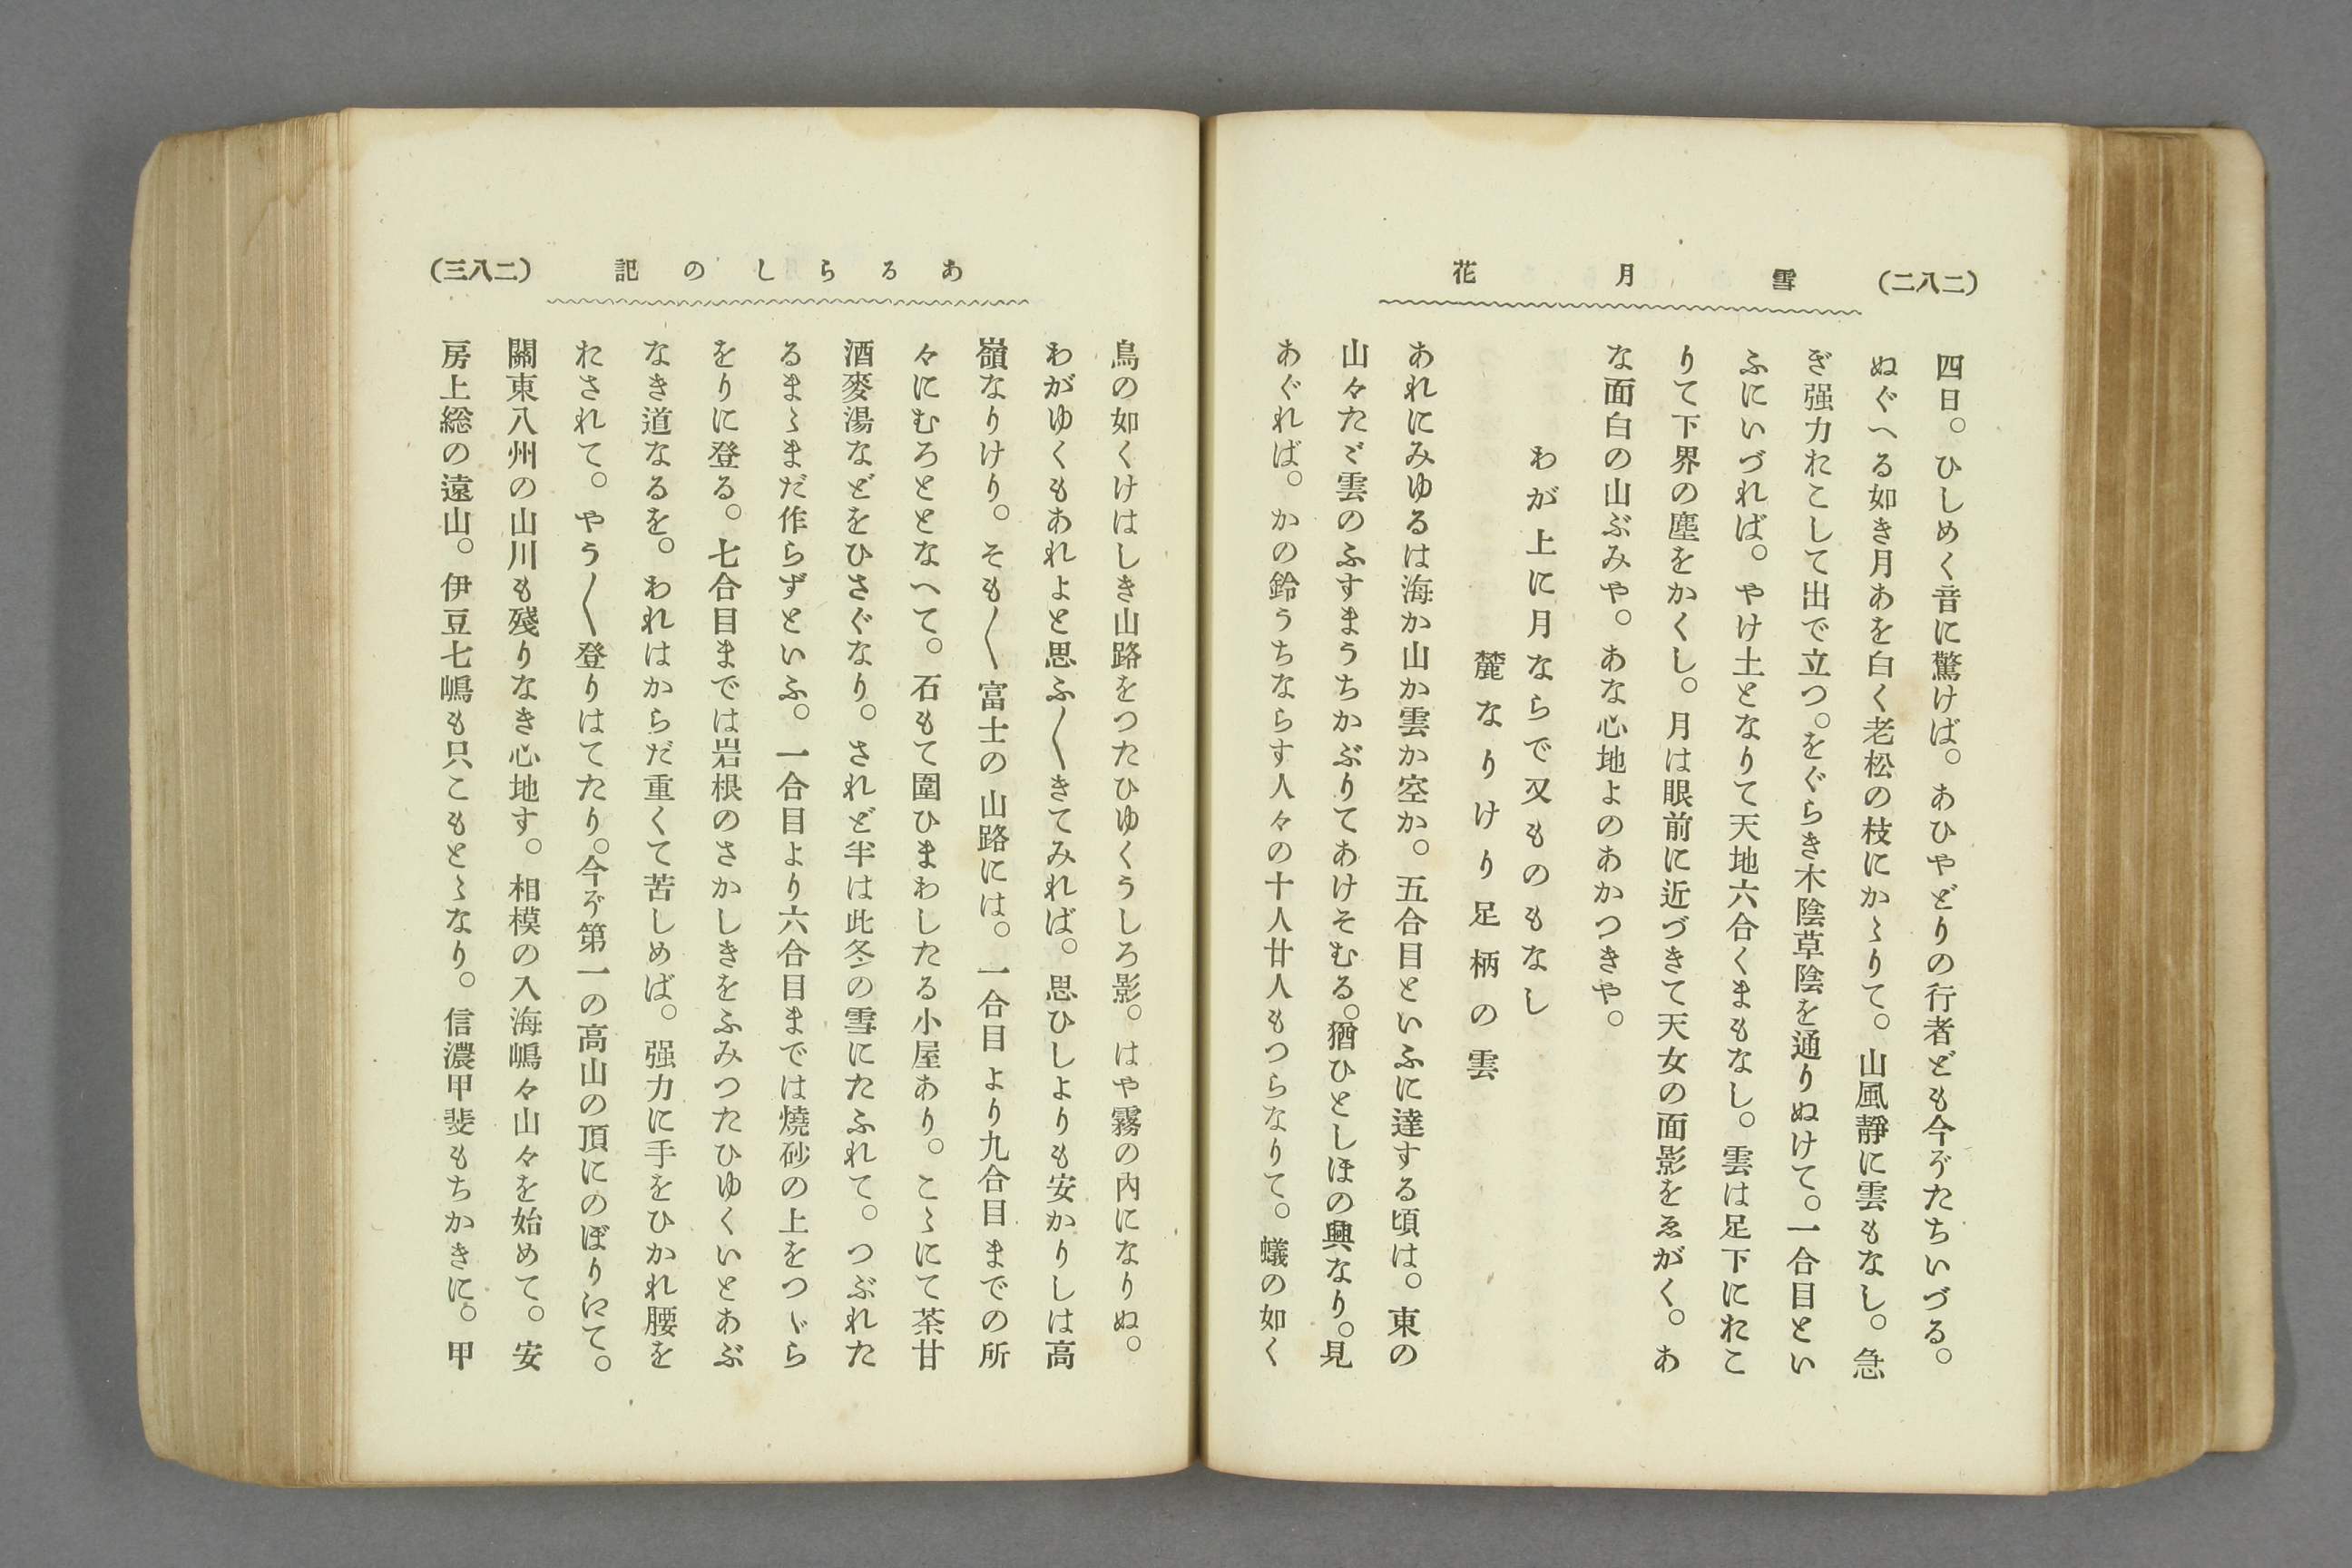 (二八二)
雪月花
四日。ひしめく音に驚けば。あひやどりの行者ども今ぞたちいづる。
ぬぐへる如き月あを白く老松の枝にかゝりて。山風靜に雲もなし。急
ぎ强力たこして出で立つ。をぐらき木陰草陰を通りぬけて。一合目とい
ふにいづれば。やけ土となりて天地六合くまもなし。雲は足下にたこ
りて下界の塵をかくし。月は眼前に近づきて天女の面影をゑがく。あ
な面白の山ぶみや。あな心地よのあかつきや。
わが上に月ならで又ものもなし
麓なりけり足柄の雲
あれにみゆるは海か山か雲か空か。五合目といふに達する頃は。東の
山々たゞ雲のふすまうちかぶりてあけそむる。猶ひとしほの興なり。見
あぐれば。かの鈴うちならす人々の十人廿人もつらなりて。蟻の如く
あるらしの記
(二八三)
鳥の如くけはしき山路をつたひゆくうしろ影。はや霧の内になりぬ。
わがゆくもあれよと思ふ〱きてみれば。思ひしよりも安かりしは高
嶺なりけり。そも〱富士の山路には。一合目より九合目までの所
々にむろととなへて。石もて圍ひまわしたる小屋あり。こゝにて茶甘
酒麥湯などをひさぐなり。されど半は此冬の雪にたふれて。つぶれた
るまゝまだ作らずといふ。一合目より六合目までは燒砂の上をつゞら
をりに登る。七合目までは岩根のさかしきをふみつたひゆくいとあぶ
なき道なるを。われはからだ重くて苦しめば。强力に手をひかれ腰を
たされて。やう〱登りはてたり。今ぞ第一の高山の頂にのぼりにて。
關東八州の山川も殘りなき心地す。相模の入海嶋々山々を始めて。安
房上総の遠山。伊豆七嶋も只こもとゝなり。信濃甲斐もちかきに。甲